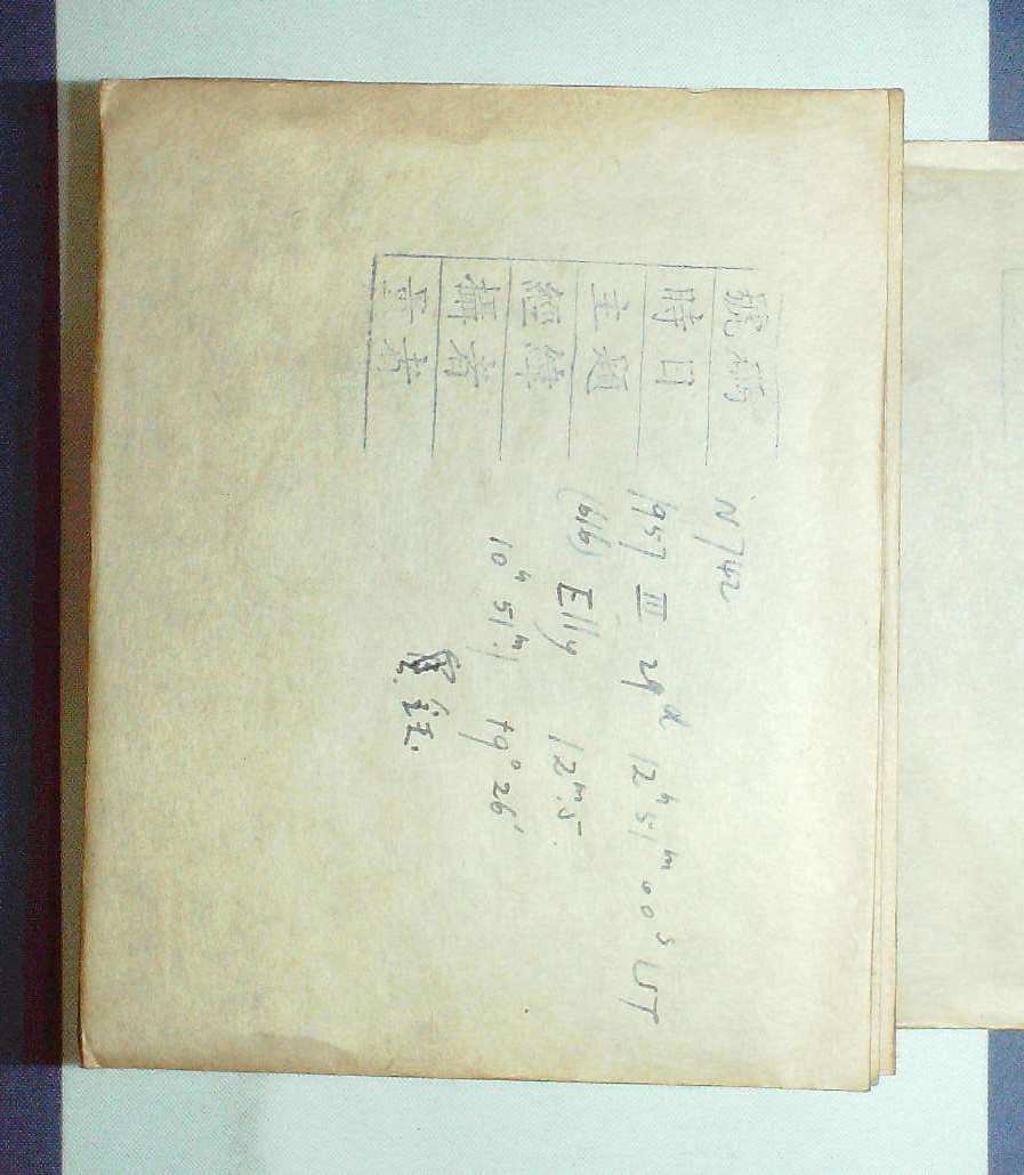 號稿 N742
時日 1957 III 29ᵈ 12ʰ51ᵐ00ˢ UT
主題 (616) Elly 12ᵐ.5
經緯 10ʰ51ᵐ.1 +9°26′
攝者
晉考